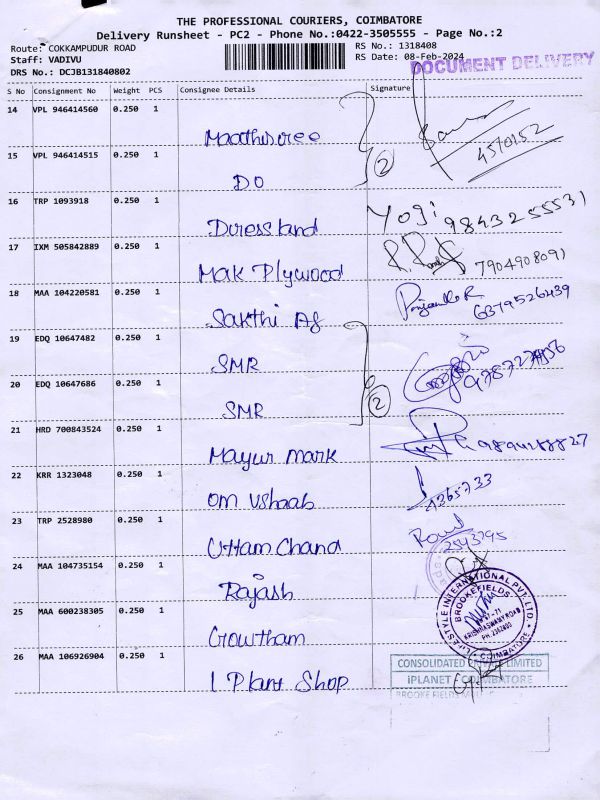 THE PROFESSIONAL COURIERS, COIMBATORE
Delivery Runsheet - PC2 - Phone No.:0422-3505555 - Page No.:2
Route: COKKAMPUDUR ROAD
RS No.: 1318408
Staff: VADIVU
RS Date: 08-Feb-2024
DRS No.: DCJB131840802
DOCUMENT DELIVERY
S No Consignment No Weight PCS Consignee Details Signature
14 VPL 946414560 0.250 1
4570152
15 VPL 946414515 0.250 1
DO
2
16 TRP 1093918 0.250 1
Yogi 9843255531
17 IXM 505842889 0.250 1
Mak Plywood 7904908091
18 MAA 104220581 0.250 1
Sakthi Ag 6379526439
19 EDQ 10647482 0.250 1
SMR
20 EDQ 10647686 0.250 1
SMR
2
21 HRD 700843524 0.250 1
Mayur Mark
22 KRR 1323048 0.250 1
4365733
23 TRP 2528980 0.250 1
Uttam Chand 2543795
24 MAA 104735154 0.250 1
Rajash
25 MAA 600238305 0.250 1
Gowtham
LIFESTYLE INTERNATIONAL PVT. LTD.
BROOKEFIELDS
67-71
KRISHNASWAMY ROAD
COIMBATORE
26 MAA 106926904 0.250 1
I Plant Shop
CONSOLIDATED LIMITED
iPLANET COIMBATORE
BROOKE FIELDS